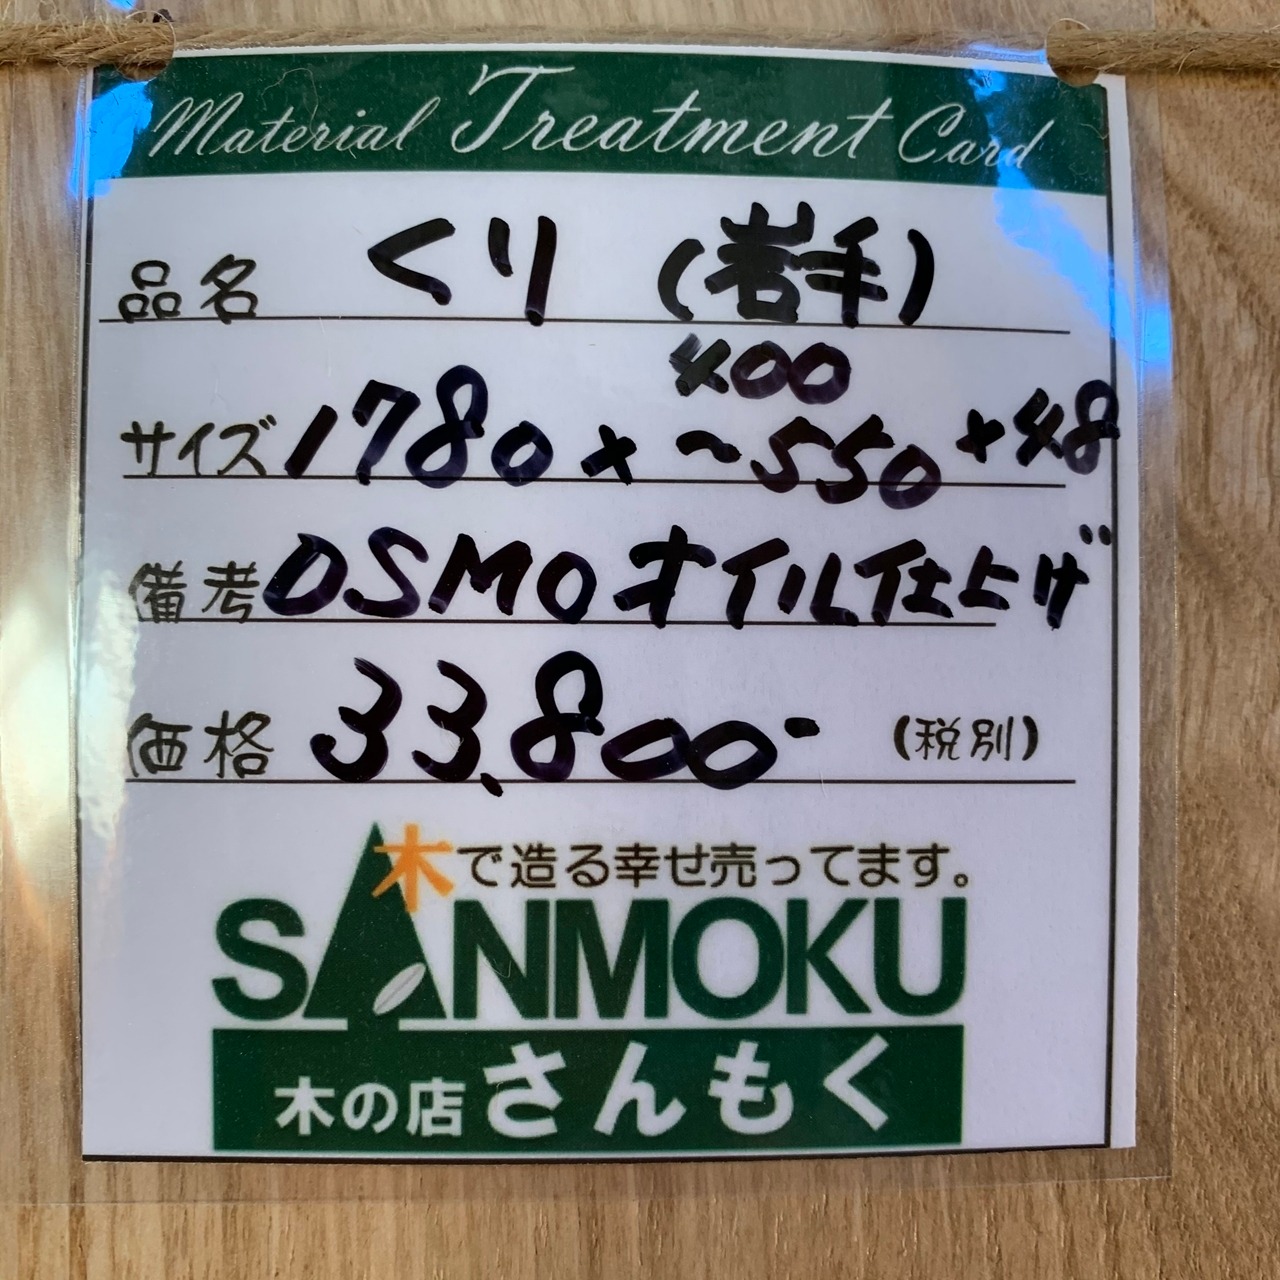 Material Treatment Card
品名 くり (岩手)
400
サイズ 1780×~550×48
備考 OSMOオイル仕上げ
価格 33,800- (税別)
木で造る幸せ売ってます。
SANMOKU
木の店さんもく